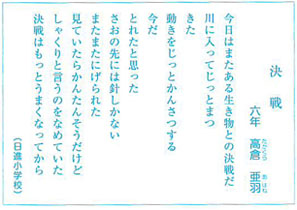 決戦
六年 高倉 亜羽
たかくら あはね
今日はまたある生き物との決戦だ
川に入ってじっとまつ
きた
動きをじっとかんさつする
今だ
とれたと思った
さおの先には針しかない
またまたにげられた
見ていたらかんたんそうだけど
しゃくりと言うのをなめていた
決戦はもっとうまくなってから
(日進小学校)